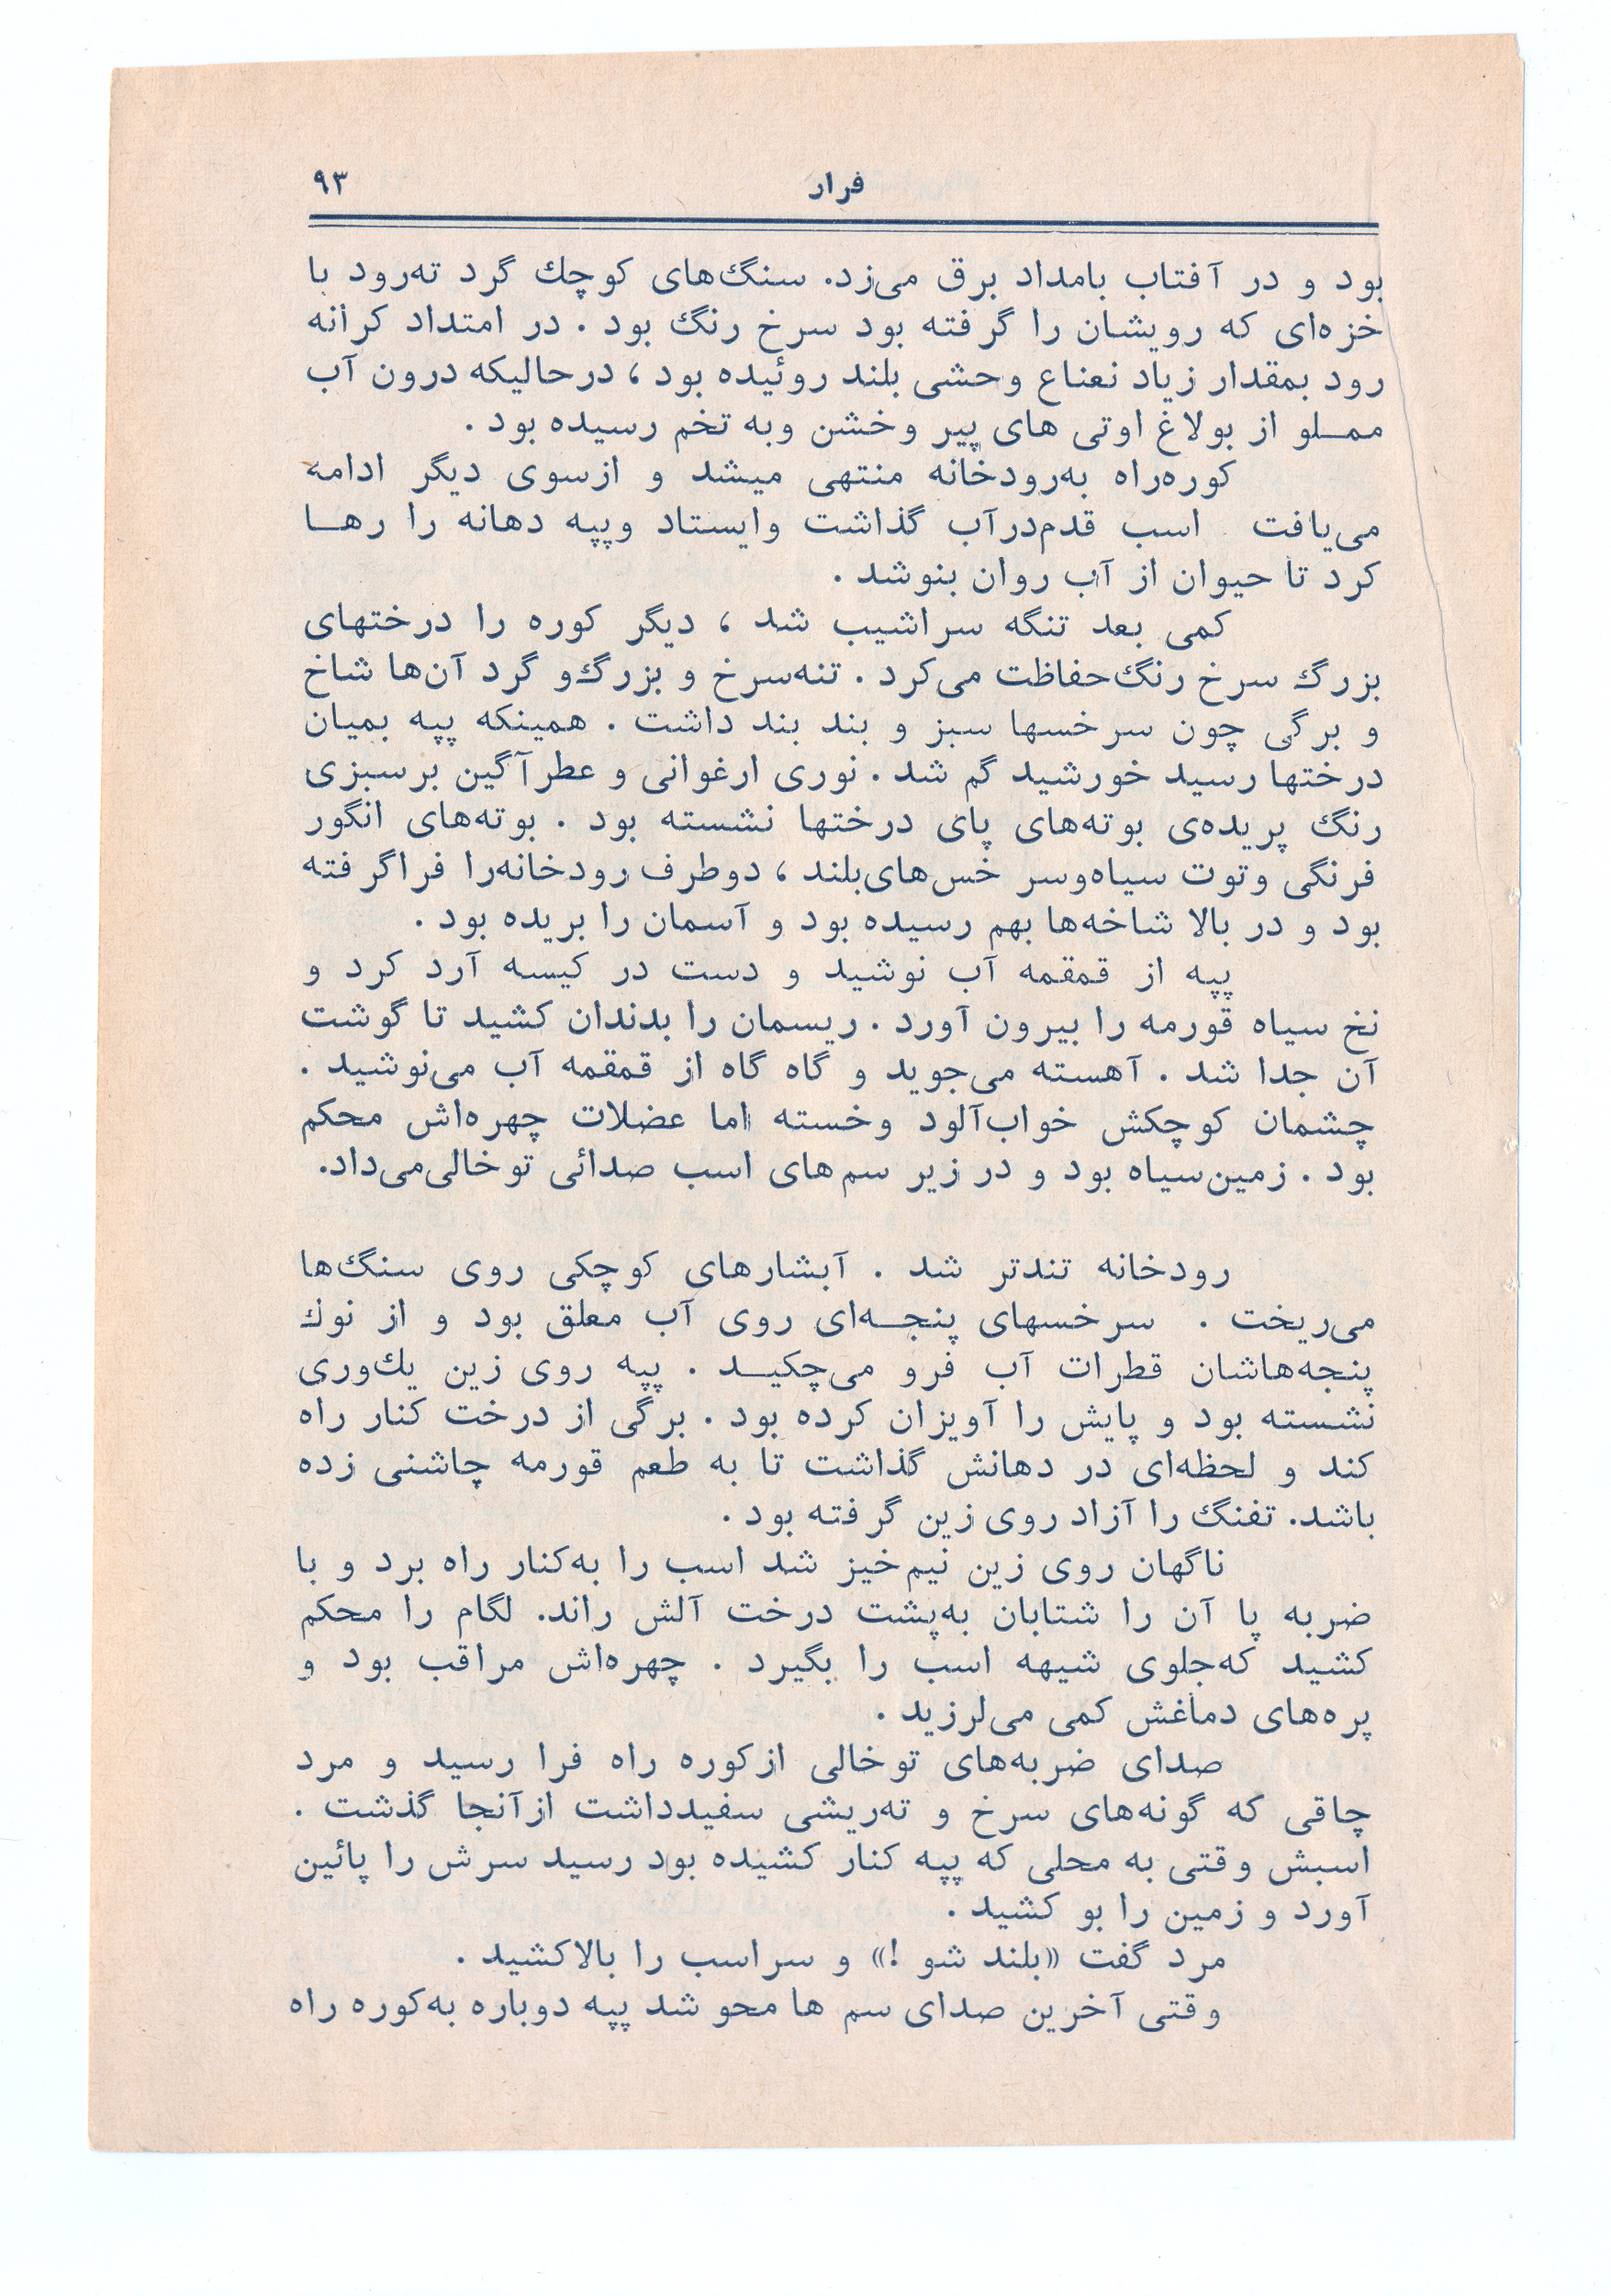 فرار ۹۳
بود و در آفتاب بامداد برق می‌زد. سنگ‌های کوچك گرد ته‌رود با
خزه‌ای که رویشان را گرفته بود سرخ رنگ بود . در امتداد کرانه
رود بمقدار زیاد نعناع وحشی بلند روئیده بود ، درحالیکه درون آب
مملو از بولاغ اوتی های پیر وخشن وبه تخم رسیده بود .
کوره‌راه به‌رودخانه منتهی میشد و ازسوی دیگر ادامه
می‌یافت اسب قدم‌درآب گذاشت وایستاد وپپه دهانه را رها
کرد تا حیوان از آب روان بنوشد .
کمی بعد تنگه سراشیب شد ، دیگر کوره را درختهای
بزرگ سرخ رنگ‌حفاظت می‌کرد . تنه‌سرخ و بزرگ‌و گرد آن‌ها شاخ
و برگی چون سرخسها سبز و بند بند داشت . همینکه پپه بمیان
درختها رسید خورشید گم شد . نوری ارغوانی و عطرآگین برسبزی
رنگ پریده‌ی بوته‌های پای درختها نشسته بود . بوته‌های انگور
فرنگی وتوت سیاه‌وسر خس‌های‌بلند ، دوطرف رودخانه‌را فراگرفته
بود و در بالا شاخه‌ها بهم رسیده بود و آسمان را بریده بود .
پپه از قمقمه آب نوشید و دست در کیسه آرد کرد و
نخ سیاه قورمه را بیرون آورد . ریسمان را بدندان کشید تا گوشت
آن جدا شد . آهسته می‌جوید و گاه گاه از قمقمه آب می‌نوشید .
چشمان کوچکش خواب‌آلود وخسته اما عضلات چهره‌اش محکم
بود . زمین‌سیاه بود و در زیر سم‌های اسب صدائی توخالی‌می‌داد.
رودخانه تندتر شد . آبشارهای کوچکی روی سنگ‌ها
می‌ریخت . سرخسهای پنجه‌ای روی آب معلق بود و از نوك
پنجه‌هاشان قطرات آب فرو می‌چکید . پپه روی زین یك‌وری
نشسته بود و پایش را آویزان کرده بود . برگی از درخت کنار راه
کند و لحظه‌ای در دهانش گذاشت تا به طعم قورمه چاشنی زده
باشد. تفنگ را آزاد روی زین گرفته بود .
ناگهان روی زین نیم‌خیز شد اسب را به‌کنار راه برد و با
ضربه پا آن را شتابان به‌پشت درخت آلش راند. لگام را محکم
کشید که‌جلوی شیهه اسب را بگیرد . چهره‌اش مراقب بود و
پره‌های دماغش کمی می‌لرزید .
صدای ضربه‌های توخالی ازکوره راه فرا رسید و مرد
چاقی که گونه‌های سرخ و ته‌ریشی سفیدداشت ازآنجا گذشت .
اسبش وقتی به محلی که پپه کنار کشیده بود رسید سرش را پائین
آورد و زمین را بو کشید .
مرد گفت «بلند شو !» و سراسب را بالاکشید .
وقتی آخرین صدای سم ها محو شد پپه دوباره به‌کوره راه